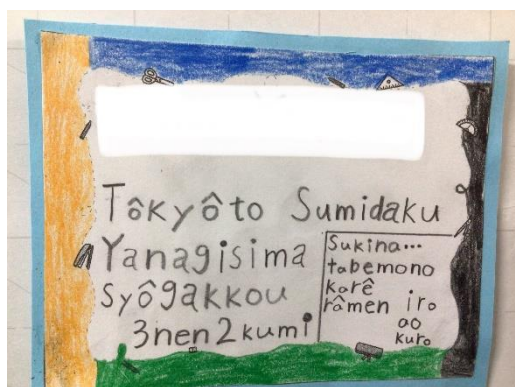 Tôkyôto Sumidaku
Yanagisima
syôgakkou
3nen2kumi
Sukina…
tabemono
karê
râmen iro
ao
kuro